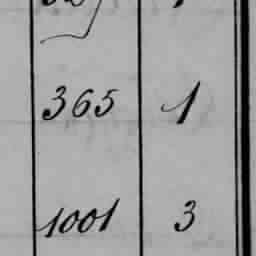 365 1
1001 3